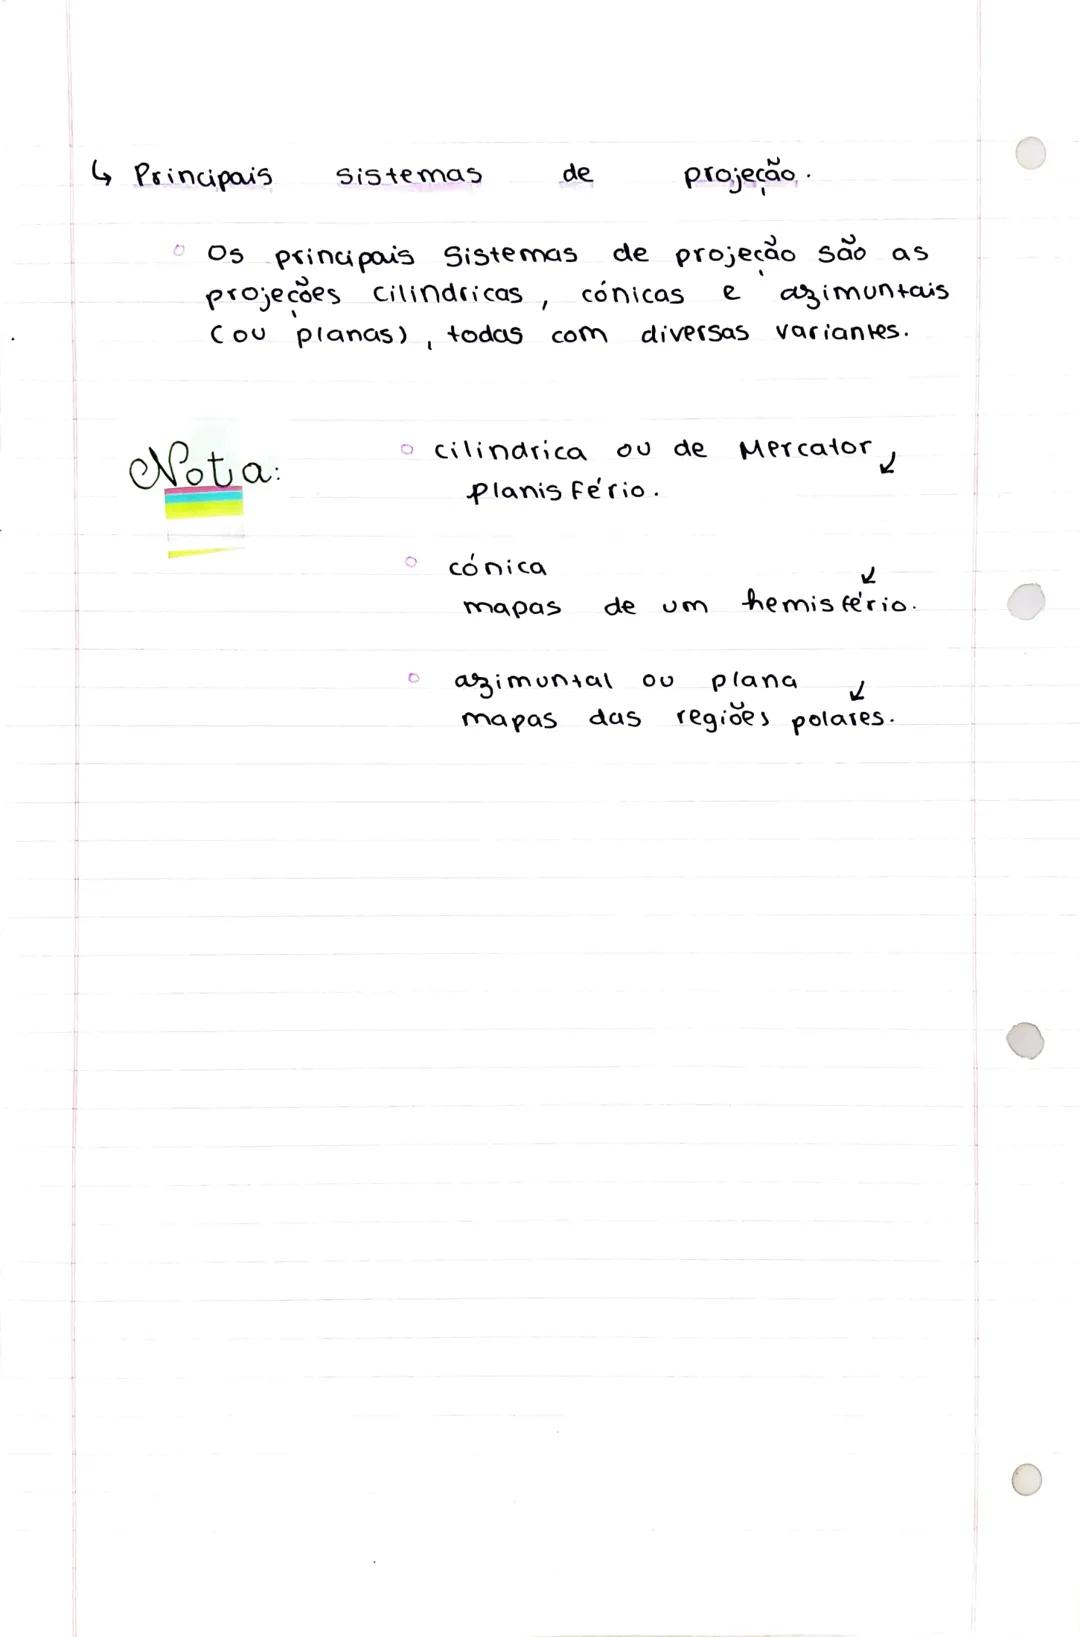 ↳ Principais sistemas de projeção.
Os principais sistemas de projeção são as
projeções cilindricas, cónicas e azimuntais
(ou planas), todas com diversas variantes.
Nota:
cilindrica ou de Mercator ↙
planisfério.
cónica ↙
mapas de um hemisfério.
azimuntal ou plana ↙
mapas das regiões polares.